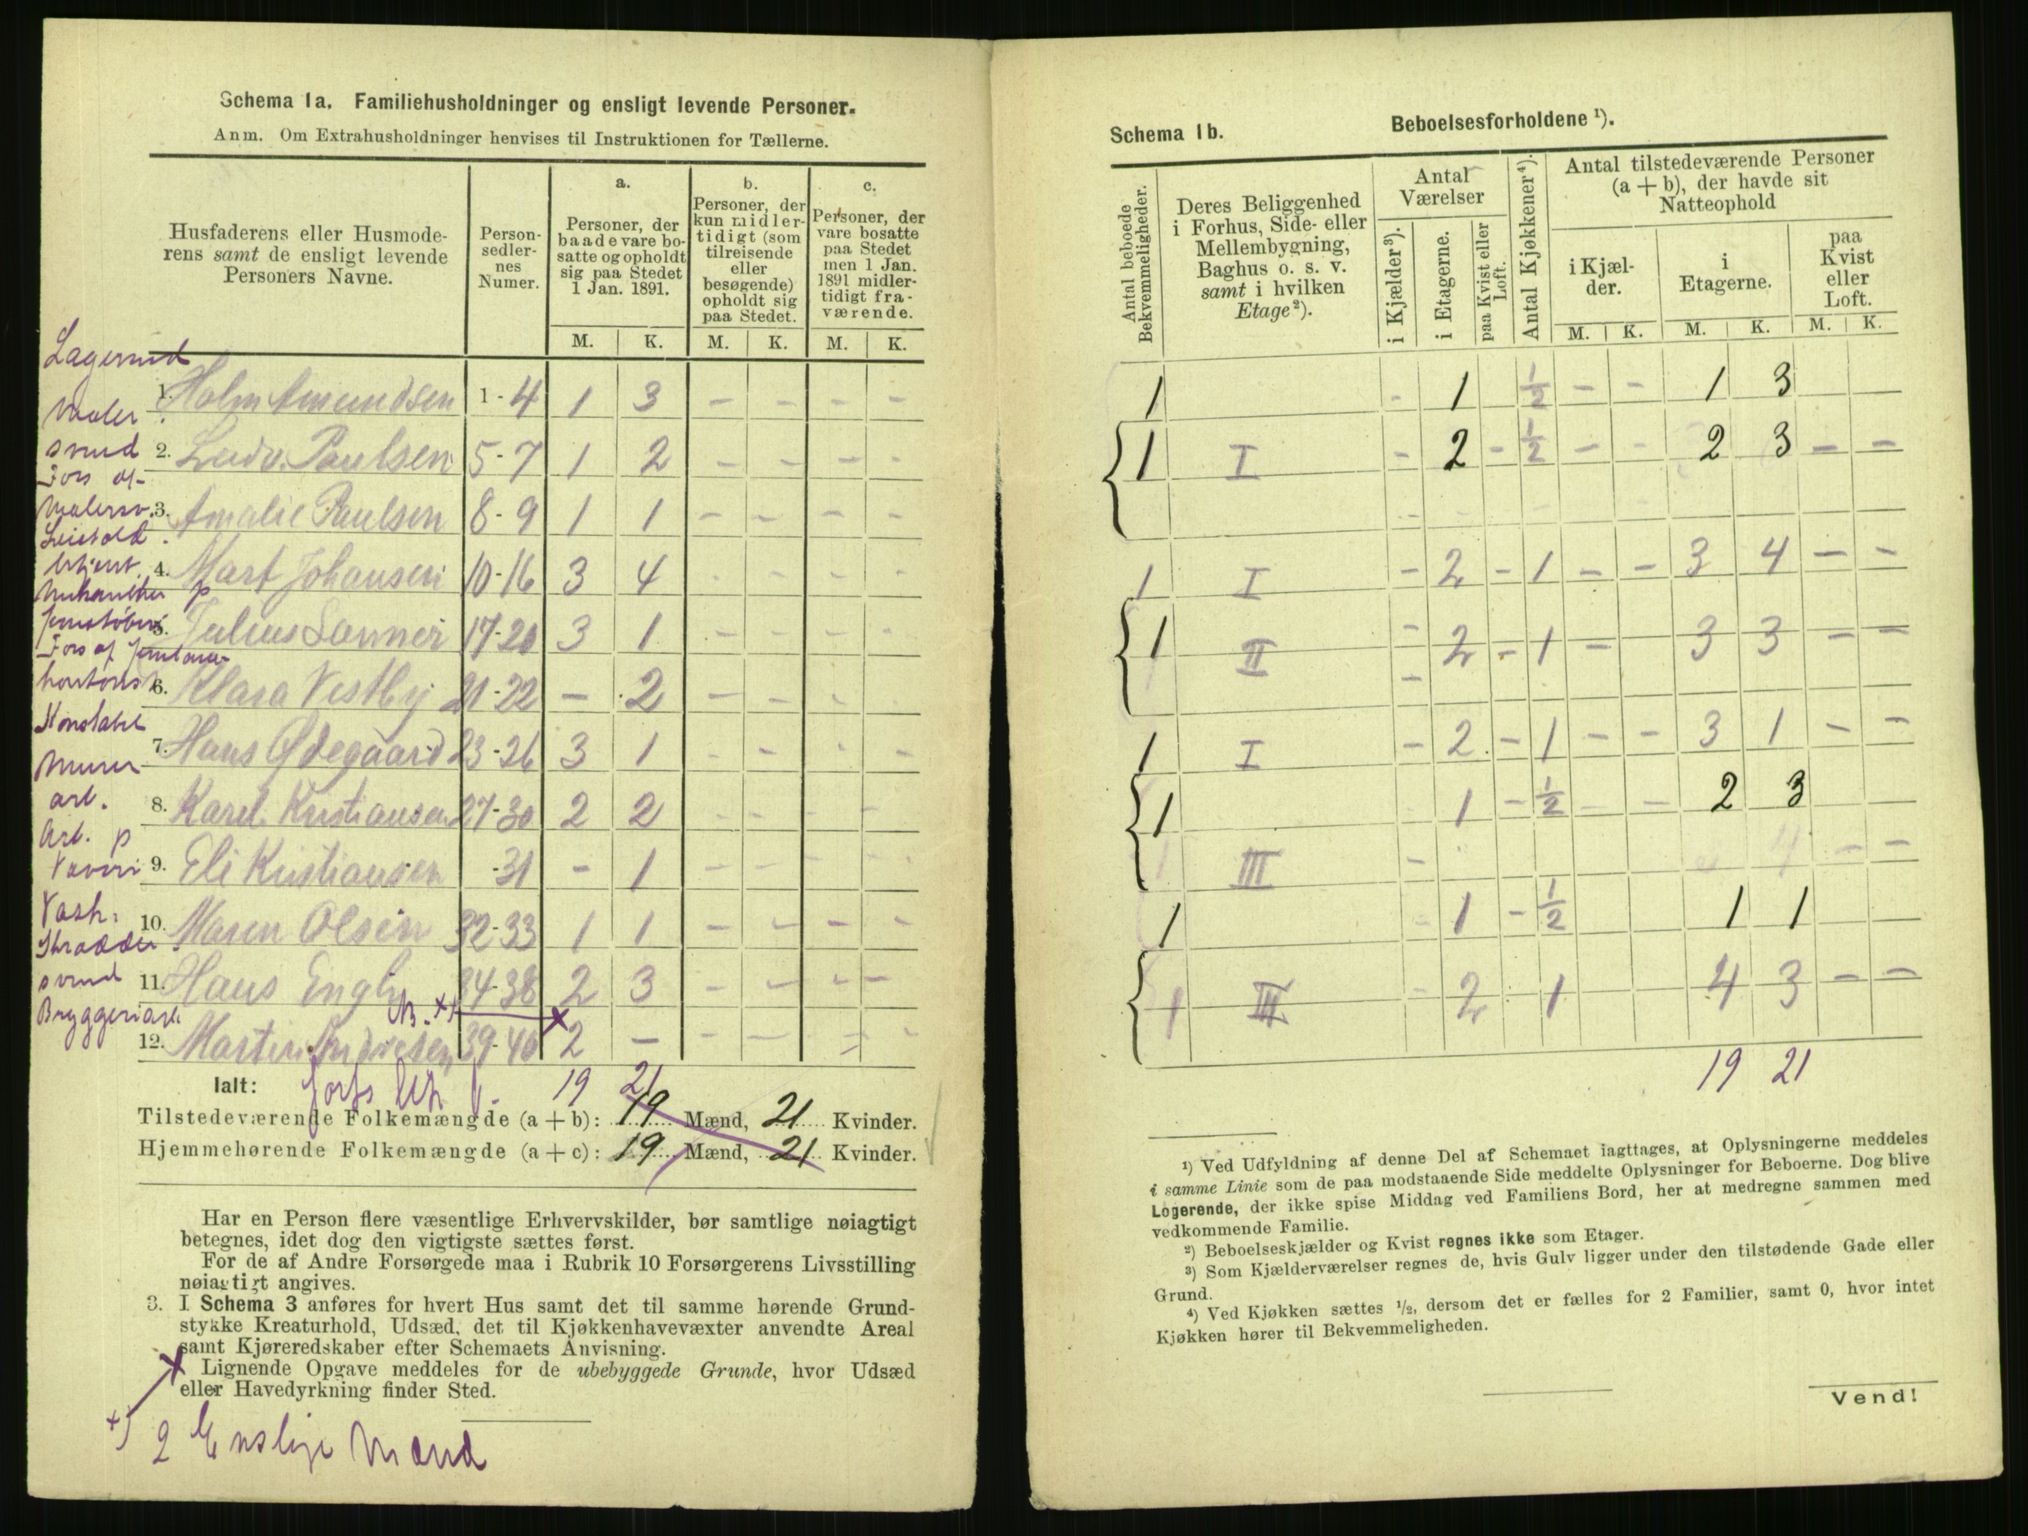 Schema 1a. Familiehusholdninger og ensligt levende Personer.
Anm. Om Extrahusholdninger henvises til Instruktionen for Tællerne.
Husfaderens eller Husmode-
rens samt de ensligt levende
Personers Navne.
Person-
sedler-
nes
Numer.
a.
Personer, der
baade vare bo-
satte og opholdt
sig paa Stedet
1 Jan. 1891.
b.
Personer, der
kun midler-
tidigt (som
tilreisende
eller
besøgende)
opholdt sig
paa Stedet.
c.
Personer, der
vare bosatte
paa Stedet
men 1 Jan.
1891 midler-
tidigt fra-
værende.
M. K. M. K. M. K.
1. Holm Amundsen 1-4 1 3 - - - -
2. Ludv. Paulsen 5-7 1 2 - - - -
3. Amalie Paulsen 8-9 1 1 - - - -
4. Mart Johansen 10-16 3 4 - - - -
5. Julius Sanner 17-20 3 1 - - - -
6. Klara Vestby 21-22 - 2 - - - -
7. Hans Ødegaard 23-26 3 1 - - - -
8. Karel Kristiansen 27-30 2 2 - - - -
9. Eli Kristiansen -31 - 1 - - - -
10. Maren Olsen 32-33 1 1 - - - -
11. Hans Engh 34-38 2 3 - - - -
12. Martin 39-40 2 - - - - -
Maler
svend
Fors af
Konstabel
Murer
arb.
Arb.
Vash.
Skrædder
svend
Ialt: 19 21
Tilstedeværende Folkemængde (a + b): 19 Mænd, 21 Kvinder.
Hjemmehørende Folkemængde (a + c): 19 Mænd, 21 Kvinder.
Har en Person flere væsentlige Erhvervskilder, bør samtlige nøiagtigt
betegnes, idet dog den vigtigste sættes først.
For de af Andre Forsørgede maa i Rubrik 10 Forsørgerens Livsstilling
nøiagtigt angives.
3. I Schema 3 anføres for hvert Hus samt det til samme hørende Grund-
stykke Kreaturhold, Udsæd, det til Kjøkkenhavevæxter anvendte Areal
samt Kjøreredskaber efter Schemaets Anvisning.
Lignende Opgave meddeles for de ubebyggede Grunde, hvor Udsæd
eller Havedyrkning finder Sted.
+) 2 Enslige Mænd
Schema 1b. Beboelsesforholdene ¹).
Antal beboede
Bekvemmeligheder.
Deres Beliggenhed
i Forhus, Side- eller
Mellembygning,
Baghus o. s. v.
samt i hvilken
Etage ²).
Antal
Værelser
i Kjælder ³).
i Etagerne.
paa Kvist eller
Loft.
Antal Kjøkkener ⁴).
Antal tilstedeværende Personer
(a + b), der havde sit
Natteophold
i Kjæl-
der.
i
Etagerne.
paa
Kvist
eller
Loft.
M. K. M. K. M. K.
1 - 1 ½ - - 1 3
1 I - 2 - ½ - - 2 3 - -
1 I - 2 - 1 - - 3 4 - -
1 II - 2 - 1 - 3 3 - -
1 I - 2 - 1 - - 3 1 - -
1 1 - ½ - - 2 3
III - 4 - -
1 - 1 - ½ 1 1
1 III - 2 1 4 3 - -
19 21
¹) Ved Udfyldning af denne Del af Schemaet iagttages, at Oplysningerne meddeles
i samme Linie som de paa modstaaende Side meddelte Oplysninger for Beboerne. Dog blive
Logerende, der ikke spise Middag ved Familiens Bord, her at medregne sammen med
vedkommende Familie.
²) Beboelseskjælder og Kvist regnes ikke som Etager.
³) Som Kjælderværelser regnes de, hvis Gulv ligger under den tilstødende Gade eller
Grund.
⁴) Ved Kjøkken sættes ½, dersom det er fælles for 2 Familier, samt 0, hvor intet
Kjøkken hører til Bekvemmeligheden.
Vend!